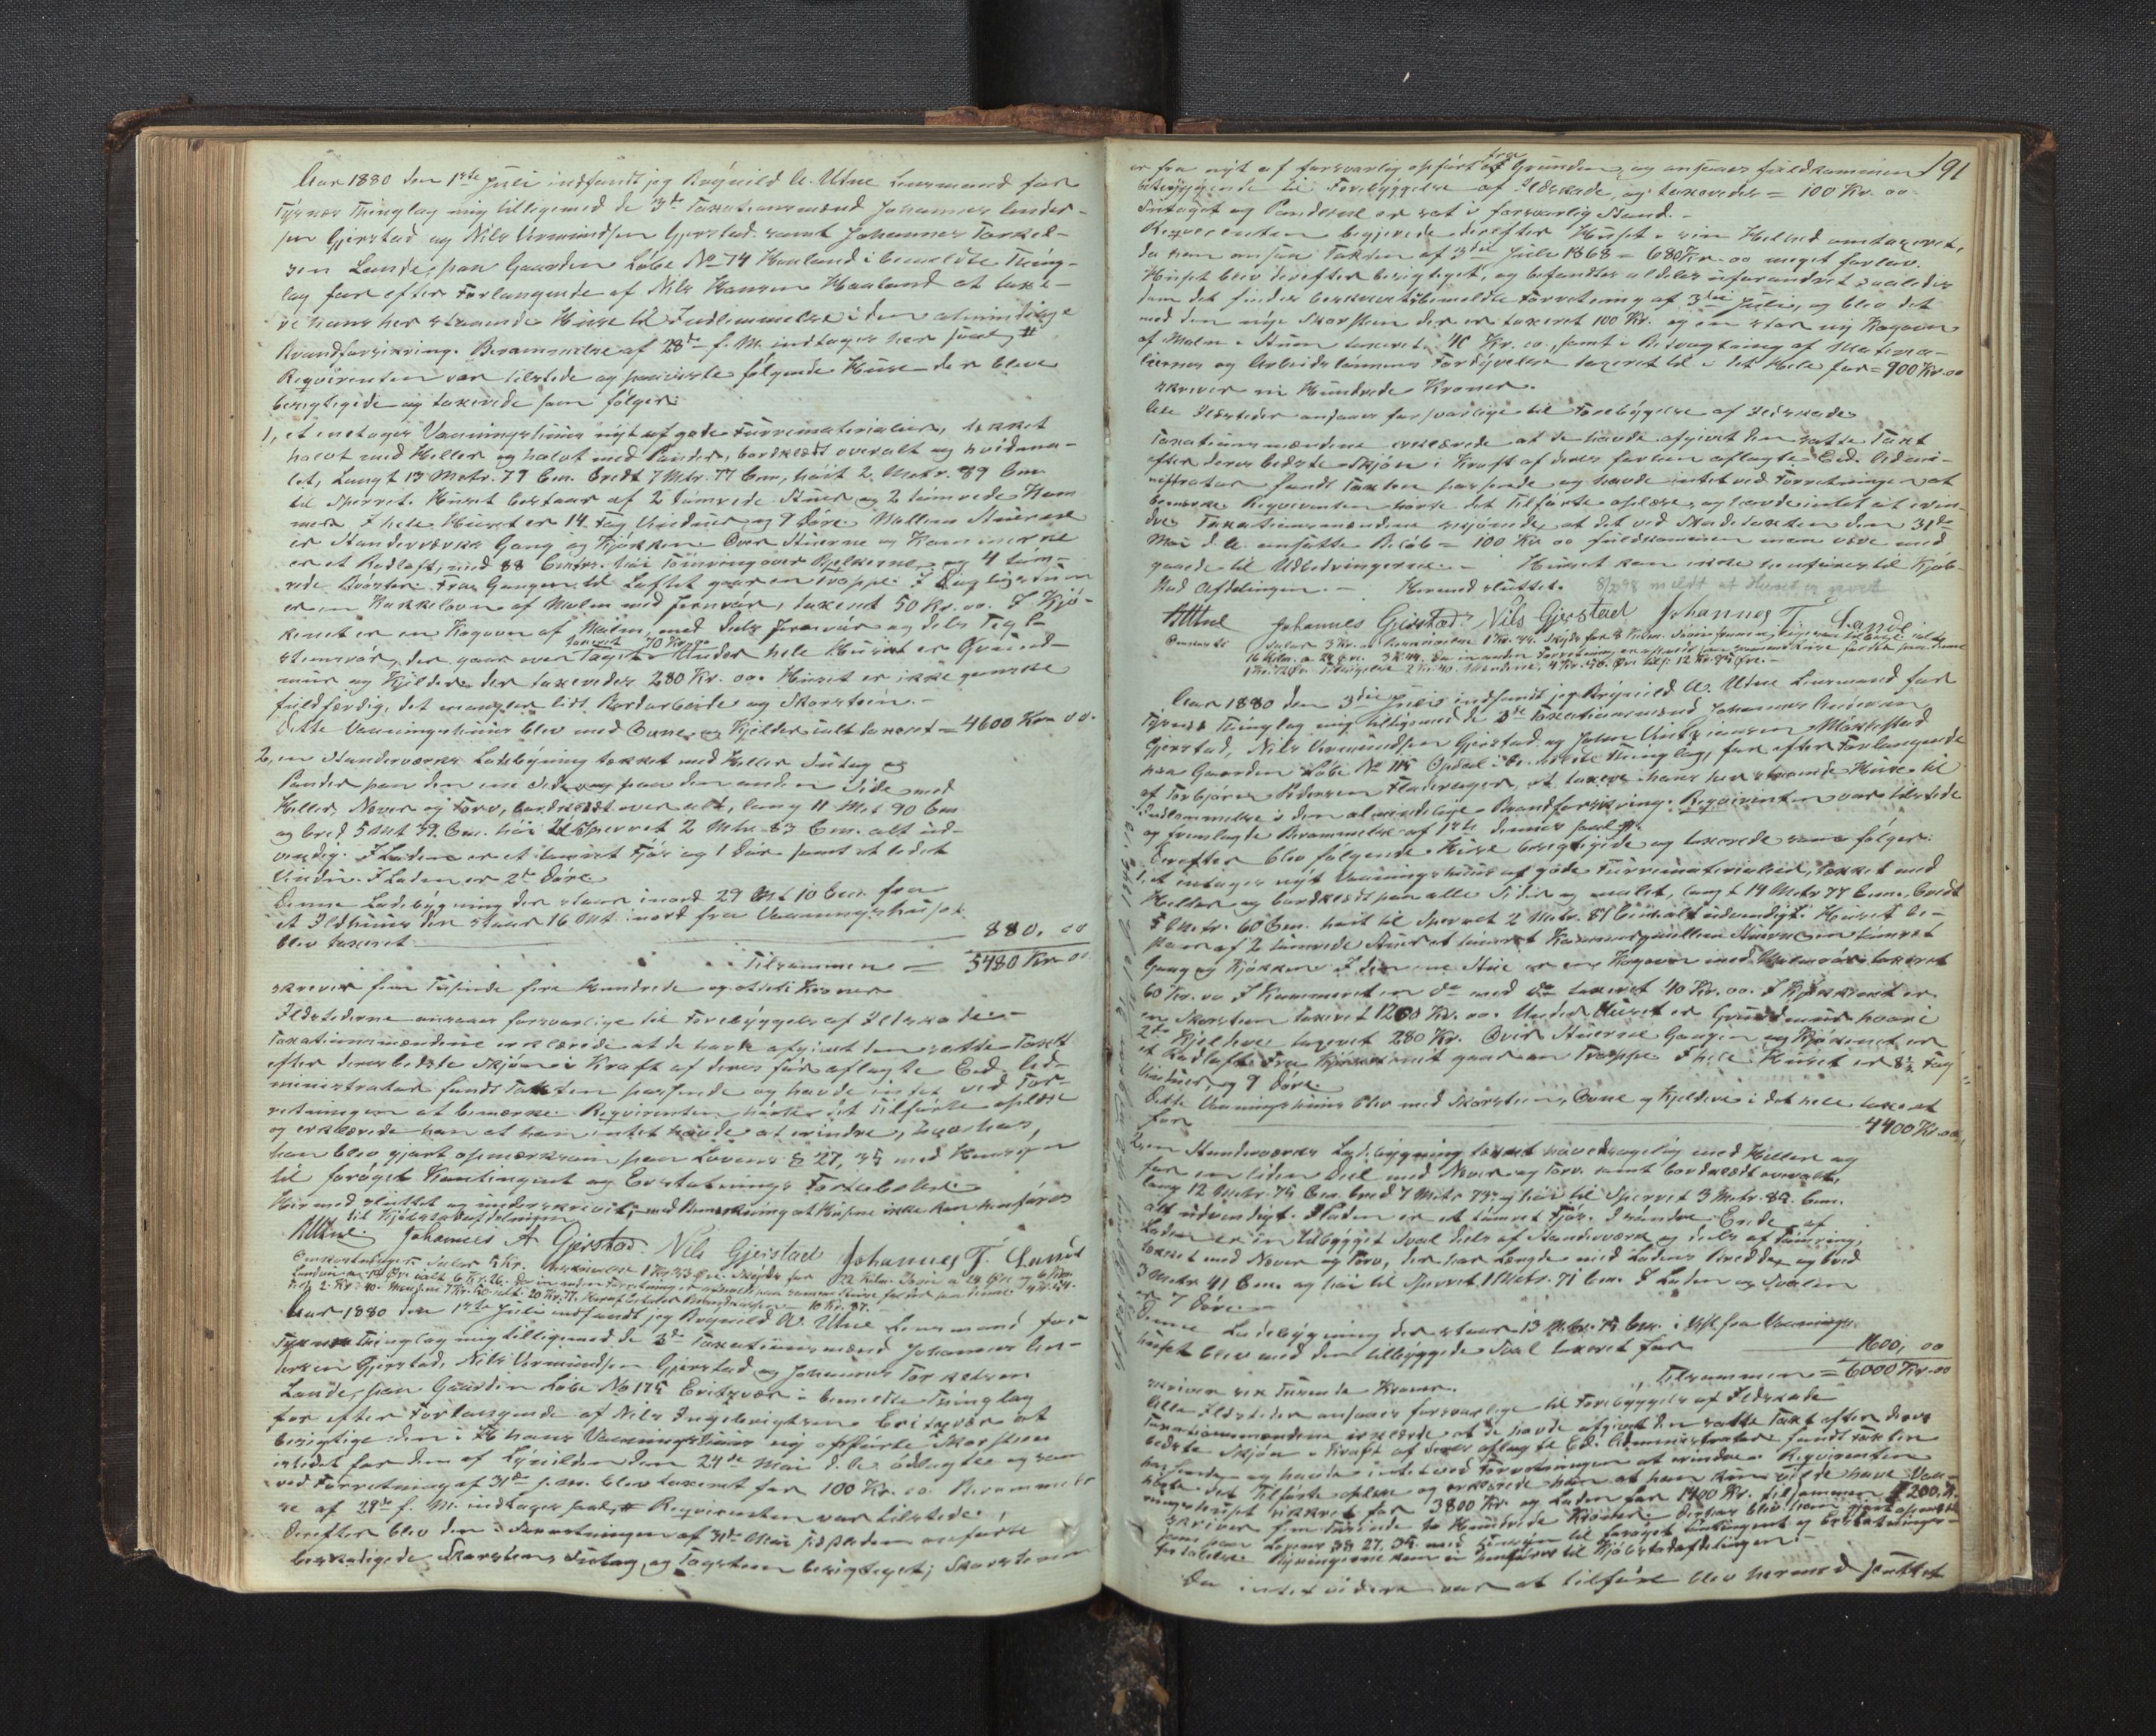 Aar 1880 den 1ste Juli indfandt jeg Brynild A. Utne Lensmand for
Tysnæs Thinglag mig tilligemed de 3de Taxationsmænd Johannes Ander-
sen Gjerstad og Nils Vermundsen Gjerstad samt Johannes Torkel-
sen Lande, paa Gaarden Løbe No 74 Haaland i bemeldte Thing-
lag for efter Forlangende af Nils Hansen Haaland at taxe-
re hans her staaende Huse til Indlemmelse i den almindelige
Brandforsikring. Berammelse af 28de f. M. indtages her saal. #
Reqvirenten var tilstede og paaviste følgende Huse der bleve
besigtigede og taxerede som følger:
1, et eetages Vaaningshuus nyt af gode Furrematerialier, tækket
halvt med Heller og halvt med Pander, bordklædt overalt og hvidma-
let, langt 13 Metr. 79 Cm. bredt 7 Mtr. 77 Cm, høit 2 Metr. 89 Cm.
til Sperret. Huset bestaar af 2 tømrede Stuer og 2 tømrede Kam
mere. I hele Huset er 14 Fag Vinduer og 9 Døre. Mellem Stuerne
er Standerværks Gang og Kjøkken. Over Stuerne og Kammerne
er et Rodloft, med 88 Cmtr. høi Tømring over Bjelkerne, og 4 tøm-
rede Brøster. Fra Gangen til Loftet gaar en Trappe. I Dagligstuen
er en Kakkelovn af Malm med Jernrør, taxeret 50 Kr. 00. I Kjø-
kenet er en Kogovn af Malm, med dels Jernrør og dels Tegl-
steensrør, der gaar over Taget taxeret 70 Kr. 00. Under hele Huset er Grund-
muur og Kjelder der taxeredes 280 Kr. 00. Huset er ikke ganske
fuldfærdig, det mangler lidt Bordarbeide og Skorsteen.-
Dette Vaaningshuus blev med Ovne og Kjelder ialt taxeret = 4600 Kr. 00.
2, en Standerværks Ladebygning tækket med Heller Sutag og
Pander paa den ene Side og paa den anden Side med
Heller, Never og Torv, bordklædt overalt, lang 11 Met 90 Cm
og bred 5 Mt 39. Cm. høi til Sperret 2 Mtr. 83 Cm. alt ud-
vendig. I Laden er et tømret Fjøs og 1 Dør samt et lidet
Vindu. I Laden er 2de Døre
Denne Ladebygning der staar i nord 29 Mt 10 Cm. fra
et Ildhuus der staar 16 Mt i nord fra Vaaningshuset
blev taxeret 880. 00
Tilsammen = 5480 Kr. 00
skriver fem Tusinde fire Hundrede og otteti Kroner
Ildstederne ansaaes forsvarlige til Forebyggelse af Ildskade.-
Taxationsmændene erklærede at de have afgivet den satte Taxt
efter deres bedste Skjøn i Kraft af deres før aflagte Eed. Ad-
ministrator fandt Taxten passende og havde intet ved For-
retningen at bemærke. Reqvirenten hørte det Tilførte oplæse
og erklærede han at han intet havde at erindre, hvorhos,
han blev gjort opmærksom paa Lovens § 27, 35 med Hensyn
til forøget Kontingent og Erstatnings Fortabelse.
Hermed sluttet og underskrevet, med Bemærkning at Husene ikke kan henføres
til Kjøbstadafdelningen
BAUtne Johannes A Gjerstad. Nils Gjerstad Johannes T. Lande
Aar 1880 den 1ste Juli indfandt jeg Brynild A. Utne Lensmand for
Tysnæs Thinglag mig tilligemed de 3de Taxationsmænd Johannes An-
dersen Gjerstad, Nils Vermundsen Gjerstad og Johannes Torkelsen
Lande, paa Gaarden Løbe No 175 Eritzvær i bemeldte Thinglag
for efter Forlangende af Nils Ingebrigtsen Eritzvær at
besigtige den i hans Vaaningshuus ny opførte Skorsteen
istedet for den af Lynilden den 24de Mai d. A. ødlagte og som
ved Forretning af 31te s. M. blev taxeret for 100 Kr. 00. Berammel-
se af 28de f. M. indtages saal. # Reqvirenten var tilstede.
Derefter blev den i Forretningen af 31te Mai sidstleden anførte
beskadigede Skorsteen, Sutag, og Tagsteen besigtiget; Skorstenen
191
er fra nyt af forsvarlig opført fra Grunden, og ansees fuldkommen
betryggende til Forebyggelse af Ildskade, og taxeredes = 100 Kr. 00.
Sutaget og Panderne er sat i forsvarlig Stand.-
Reqvirenten begjerede derefter Huset i sin Helhed omtaxeret,
da han ansaa Taxten af 3die Juli 1868 = 680 Kr. 00 meget for lav.
Huset blev derefter besigtiget, og befandtes aldeles uforandret saaledes
som det findes beskrevet i bemeldte Forretning af 3die Juli, og blev det
med den nye Skorsteen der er taxeret 100 Kr. og en stor ny Kogovn
af Malm i Stuen taxeret 40 Kr. 00, samt i Betragtning af Materia-
liernes og Arbeidslønnens Fordyrelse taxeret til i det Hele for = 900 Kr. 00
skriver ni Hundrede Kroner.
Alle Ildsteder ansaaes forsvarlige til Forebyggelse af Ildskade
Taxationsmændene erklærede at de havde afgivet den satte Taxt
efter deres bedste Skjøn i Kraft af deres forhen aflagte Eed. Admini-
nistrator fandt Taxten passende og havde intet ved Forretningen at
bemærke. Reqvirenten hørte det Tilførte oplæse, og havde intet at erin-
dre. Taxationsmændene skjønnede, at det ved Skadetaxten den 31te
Mai d. A. ansatte Beløb = 100 Kr. 00 fuldkommen maa være med
gaaet til Udbedringerne.- Huset kan ikke henføres til Kjøb-
stad Afdelingen.- Hermed sluttet. 8/2 98 meldt at Huset er revet
BAUtne Johannes Gjerstad Nils Gjerstad Johannes T. Lande
Aar 1880 den 3die Juli indfandt jeg Brynild A. Utne Lensmand for
Tysnæs Thinglag mig tilligemed de 3de Taxationsmænd Johannes Andersen
Gjerstad, Nils Vermundsen Gjerstad og John Møklestad
paa Gaarden Løbe No 115 Opdal i bemeldte Thinglag, for efter Forlangende
af Torbjørn Pedersen Fladerager, at taxere hans her staaende Huse til
Indlemmelse i den almindelige Brandforsikring. Reqvirenten var tilstede
og fremlagte Berammelse af 1ste dennes saal. #.
Derefter blev følgende Huse besigtigede og taxerede som følger:
1, et eetages nyt Vaaningshuus af gode Furrematerialier, tækket med
Heller og bordklædt paa alle Sider og malet, langt 14 Metr. 77 Cm., bredt
8 Metr. 60 Cm. høit til Sperret 2 Metr. 81 Cm. alt udvendigt. Huset be-
staar af 2 tømrede Stuer et tømret Kammer, mellem Stuerne en tømret
Gang og Kjøkken. I den ene Stue er en Kogovn med Malmrør taxeret
60 Kr. 00 I Kammeret en do med do taxeret 40 Kr. 00. I Kjøkkenet er
en Skorsteen taxeret 120 Kr. 00. Under Huset er Grundmuur hvori
2de Kjeldere taxeret 280 Kr. Over Stuerne Gangen og Kjøkenet er
et Rodloft. Fra Kjøkkenet gaar en Trappe. I hele Huset er 8½ Fag
Vinduer, og 9 Døre.
Dette Vaaningshuus blev med Skorsteen, Ovne og Kjeldere i det hele taxeret
for 4400 Kr. 00,
2, en Standerværks Ladebygning tækket hovedsagelig med Heller og
for en liden Deel med Never og Torv. samt bordklædt overalt,
lang 12 Metr. 75 Cm. bred 7 Metr 73 og høi til Sperret 3 Metr. 82. Cm.
alt udvendigt. I Laden er et tømret Fjøs. I søndre Ende af
Laden er en tilbygget Sval dels af Standerværk og dels af Tømring,
tækket med Never og Torv, der har Længde med Ladens Bredde, og bred
3 Metr 41 Cm. og høi til Sperret 1 Metr. 71 Cm. I Laden og Svalen
er 7 Døre.-
Denne Ladebygning der staar 13 Metr. 75 Cm. i fra Vaanings-
huset blev med den tilbyggede Sval taxeret for 1600, 00
Tilsammen = 6000 Kr. 00
skriver sex Tusende Kroner.
Alle Ildsteder ansaaes forsvarlige til Forebyggelse af Ildskade
Taxationsmændene erklærede at de havde afgivet den satte Taxt efter deres
bedste Skjøn i Kraft af deres aflagte Ed. Administrator fandt Taxten
passende og havde intet ved Forretningen at erindre. Reqvirenten
hørte det Tilførte oplæse og erklærede han at han kun vilde have Vaa-
ningshuset sikkret for 3800 Kr. og Laden for 1400 Kr. tilsammen 5200 Kr.
skriver fem Tusinde to Hundrede Kroner. Derhos blev han gjort opmærk-
som paa Lovens §§ 27, 35. med Hensyn til forøget Contingent og Erstatnings-
fortabelse. Bygningerne kan ei henføres til Kjøbstadafdelingen.
Da intet videre var at tilføre blev hermed sluttet